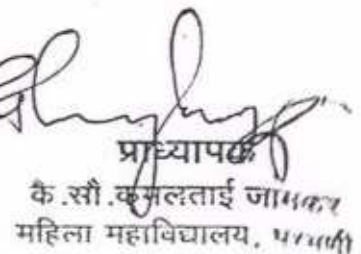 प्राध्यापक
कै.सौ.कमलताई जामकर
महिला महाविद्यालय, परभणी